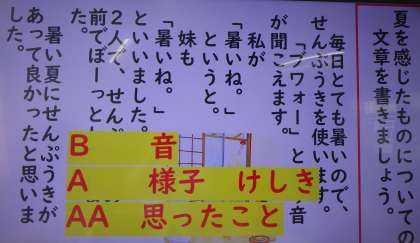 夏を感じたものについての
文章を書きましょう。
毎日とても暑いので、
せんぷうきを使います。
「ブウォー」と
音
が聞こえます。
私が
「暑いね。」
というと。
妹も
「暑いね。」
といいました。
２人で、せんぷ
前でぼーっとし
暑い夏にせんぷうきが
あって良かったと思いま
した。
B 音
A 様子 けしき
AA 思ったこと